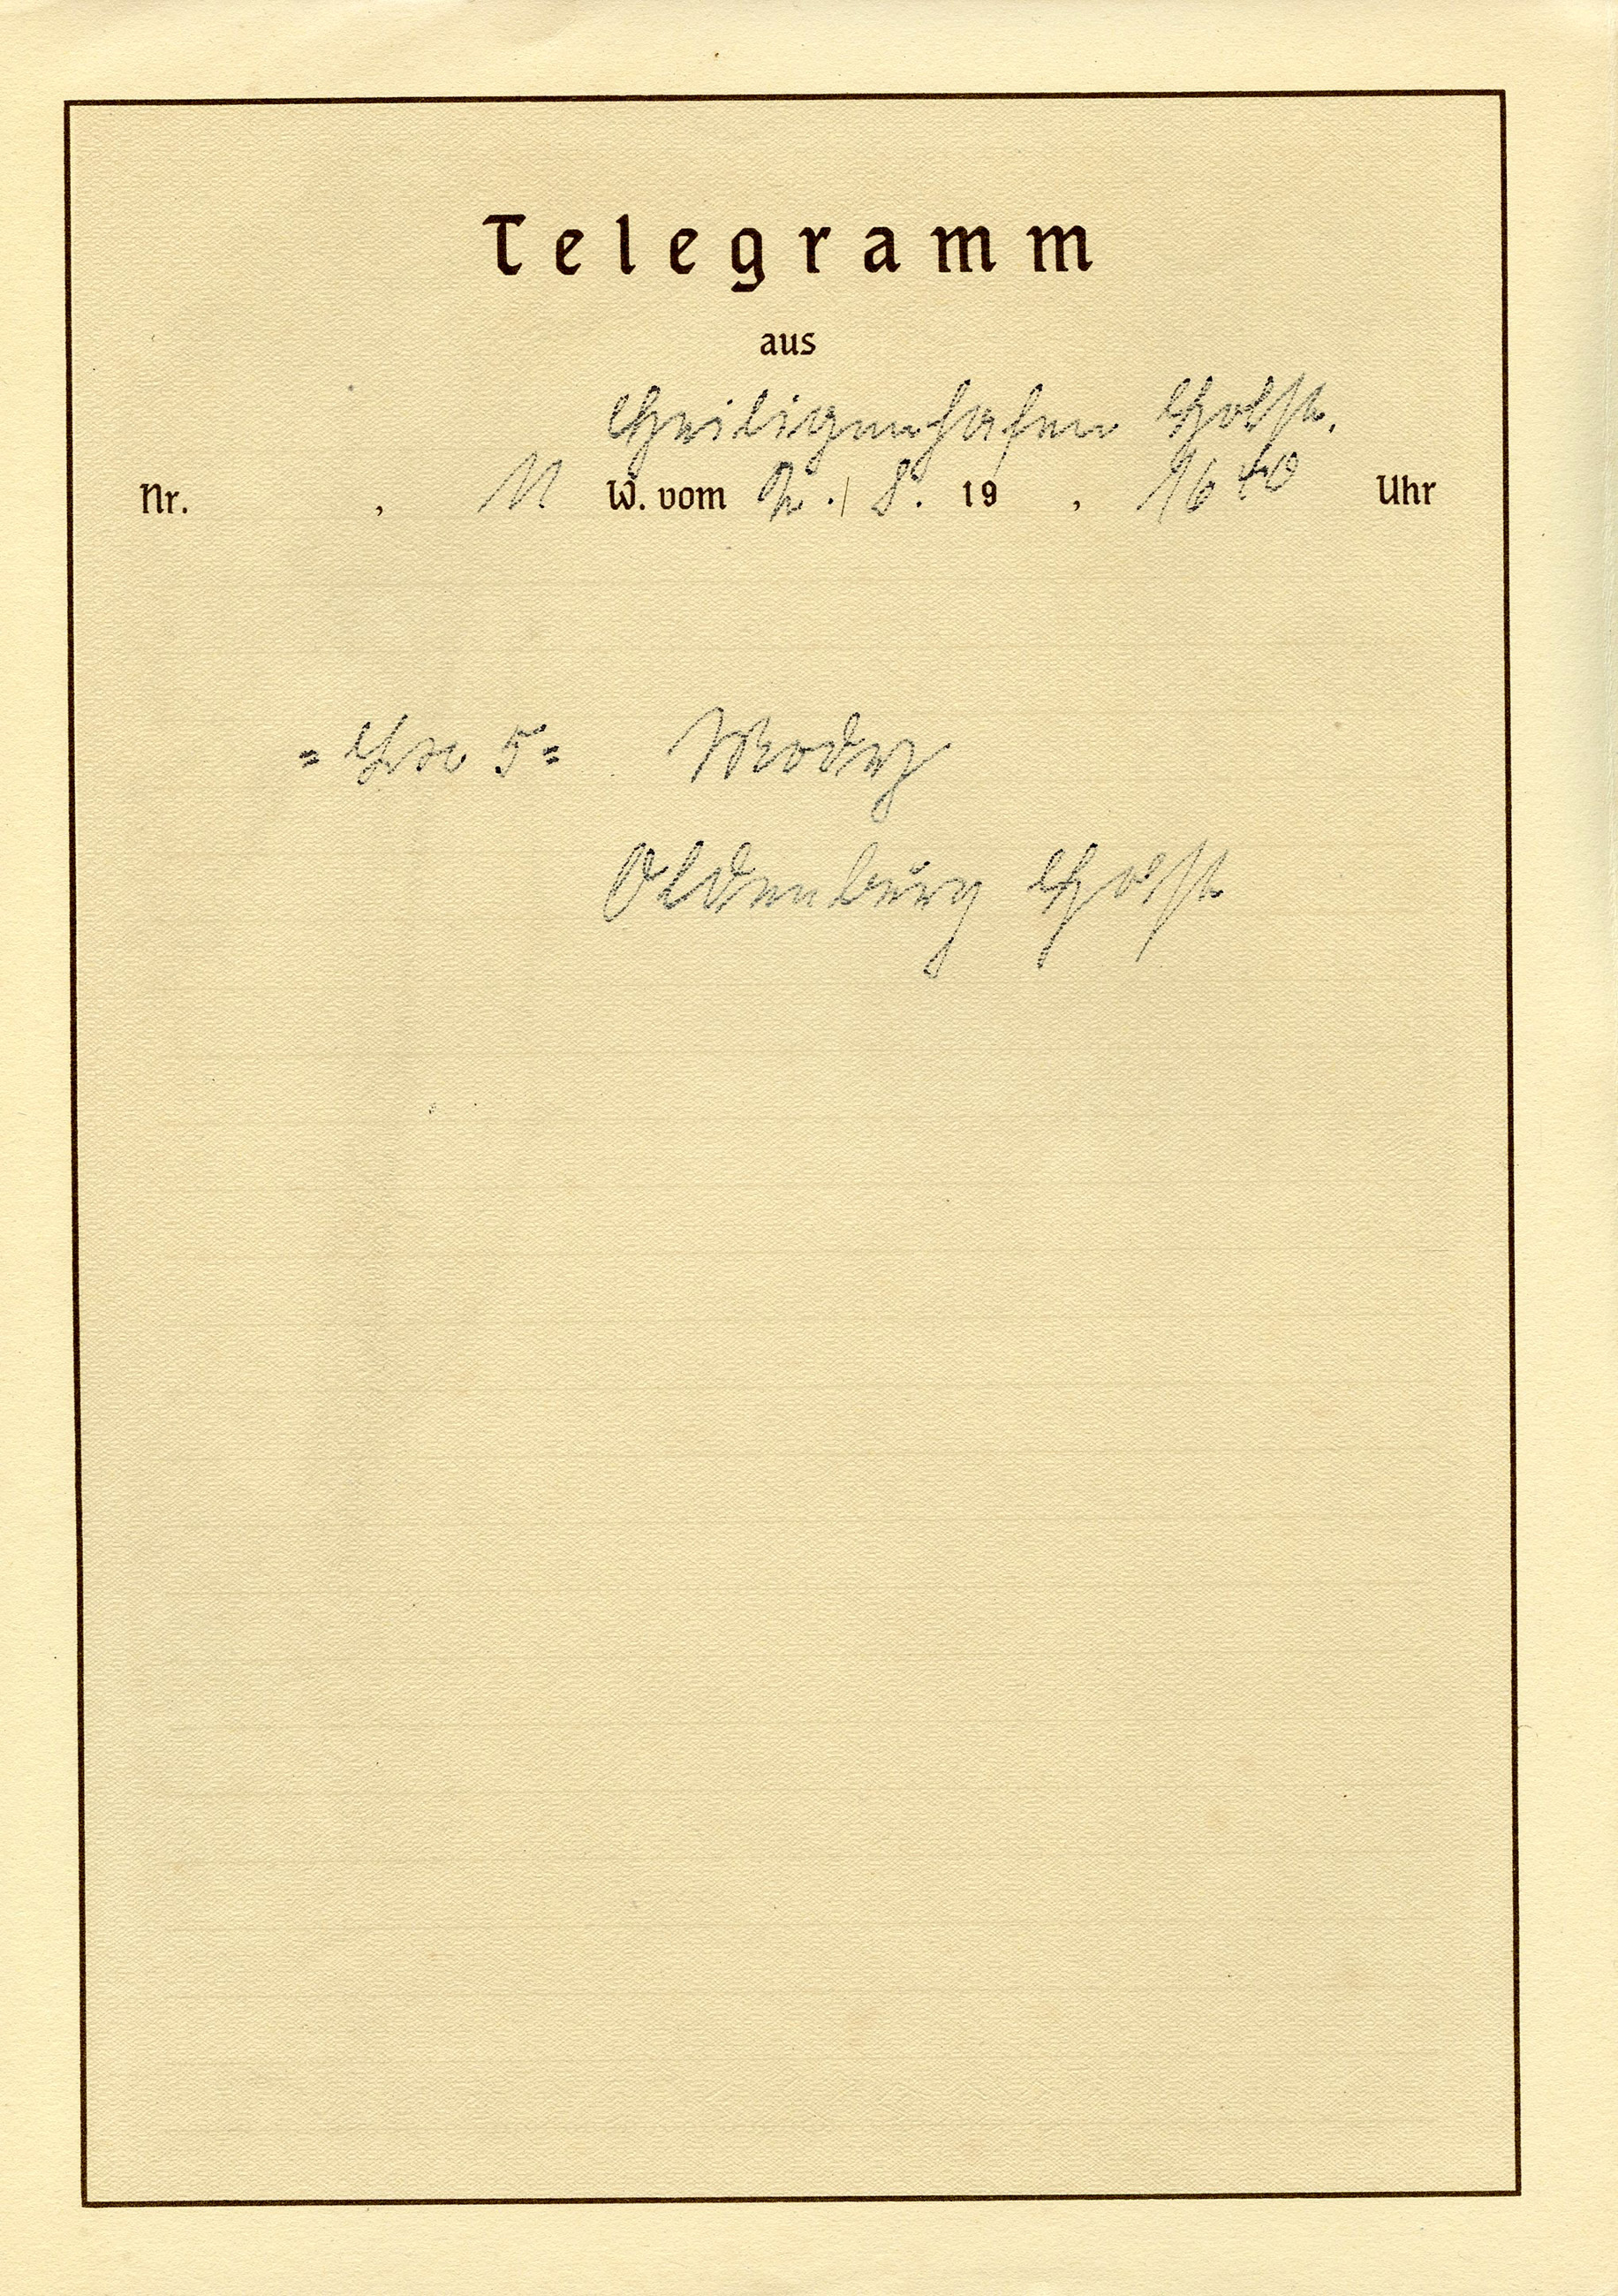 Telegramm
aus
Heiligenhafen Holst.
Nr. , 11 W. vom 2. / 8. 19 , 16 40 Uhr
= Lx 5 =
Oldenburg Holst